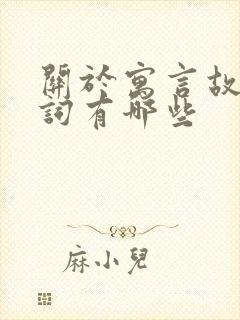 關於寓言故
詞有哪些
麻小兒